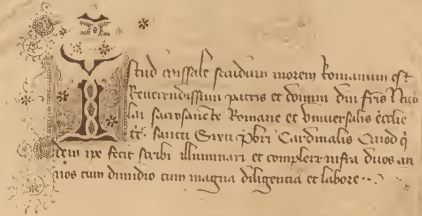 Istud missale secundum morem Romanum est
Reverendissimi patris et domini dni fris Nico
lai sacrosancte Romane et universalis ecclie
tt. sancti Sixti pbri Cardinalis Quod q
dem ipe fecit scribi illuminari et complere infra duos an
nos cum dimidio cum magna diligencia et labore